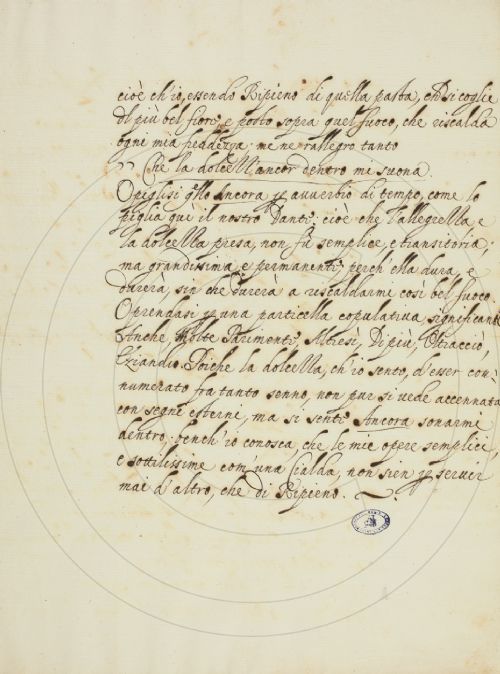 cioè ch'io, essendo Ripieno di quella pasta, ch'si coglie
dl più bel fiore, e posto sopra quel fuoco, che riscalda
ogni mia freddezza, me ne rallegro tanto
Che la dolcell'ancor dentro mi suona.
O piglisi q̃llo Ancora p avverbio di tempo, come lo
piglia qui il nostro Dante; cioè che l'allegrezza, e
la dolcezza presa, non fù semplice, e transitoria;
ma grandissima, e permanente; perch'ella dura, e
durerà, sin che durerà a riscaldarmi così bel fuoco.
O prendasi p una particella copulativa significante
Anche, Molte Parimenti, Altresì, Di più, Oltracciò,
Eziandio. Poiche la dolcezza, ch'io sento, d'esser con-
numerato fra tanto senno, non pur si vede accennata
con segni esterni, ma si sente Ancora sonarmi
dentro; bench'io conosca, che le mie opere semplici,
e sottilissime com'una cialda, non sien p servir
mai d'altro, che di Ripieno.